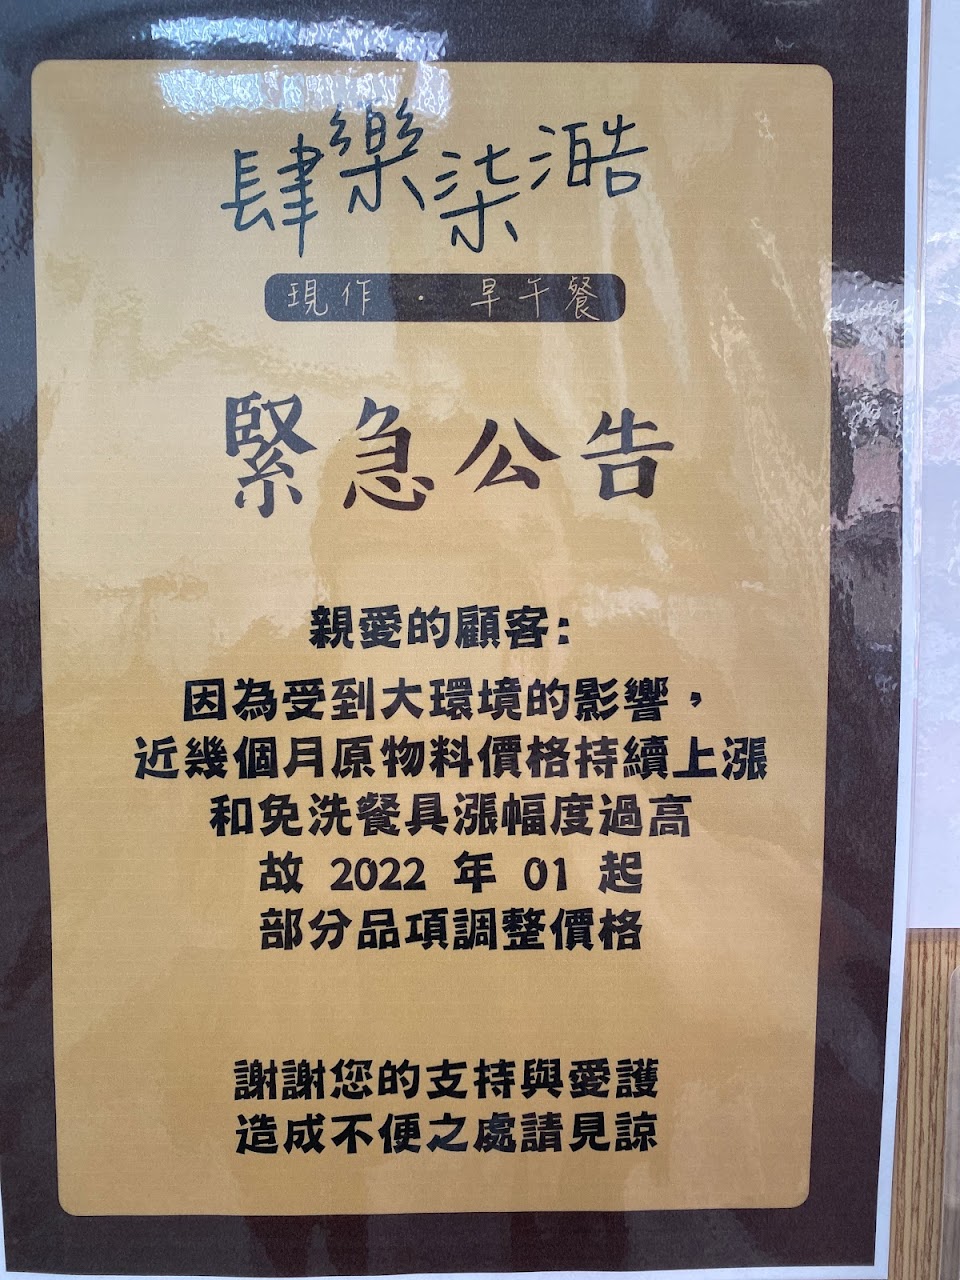 肆樂柒澔
現作 · 早午餐
緊急公告
親愛的顧客:
因為受到大環境的影響，
近幾個月原物料價格持續上漲
和免洗餐具漲幅度過高
故 2022 年 01 起
部分品項調整價格
謝謝您的支持與愛護
造成不便之處請見諒